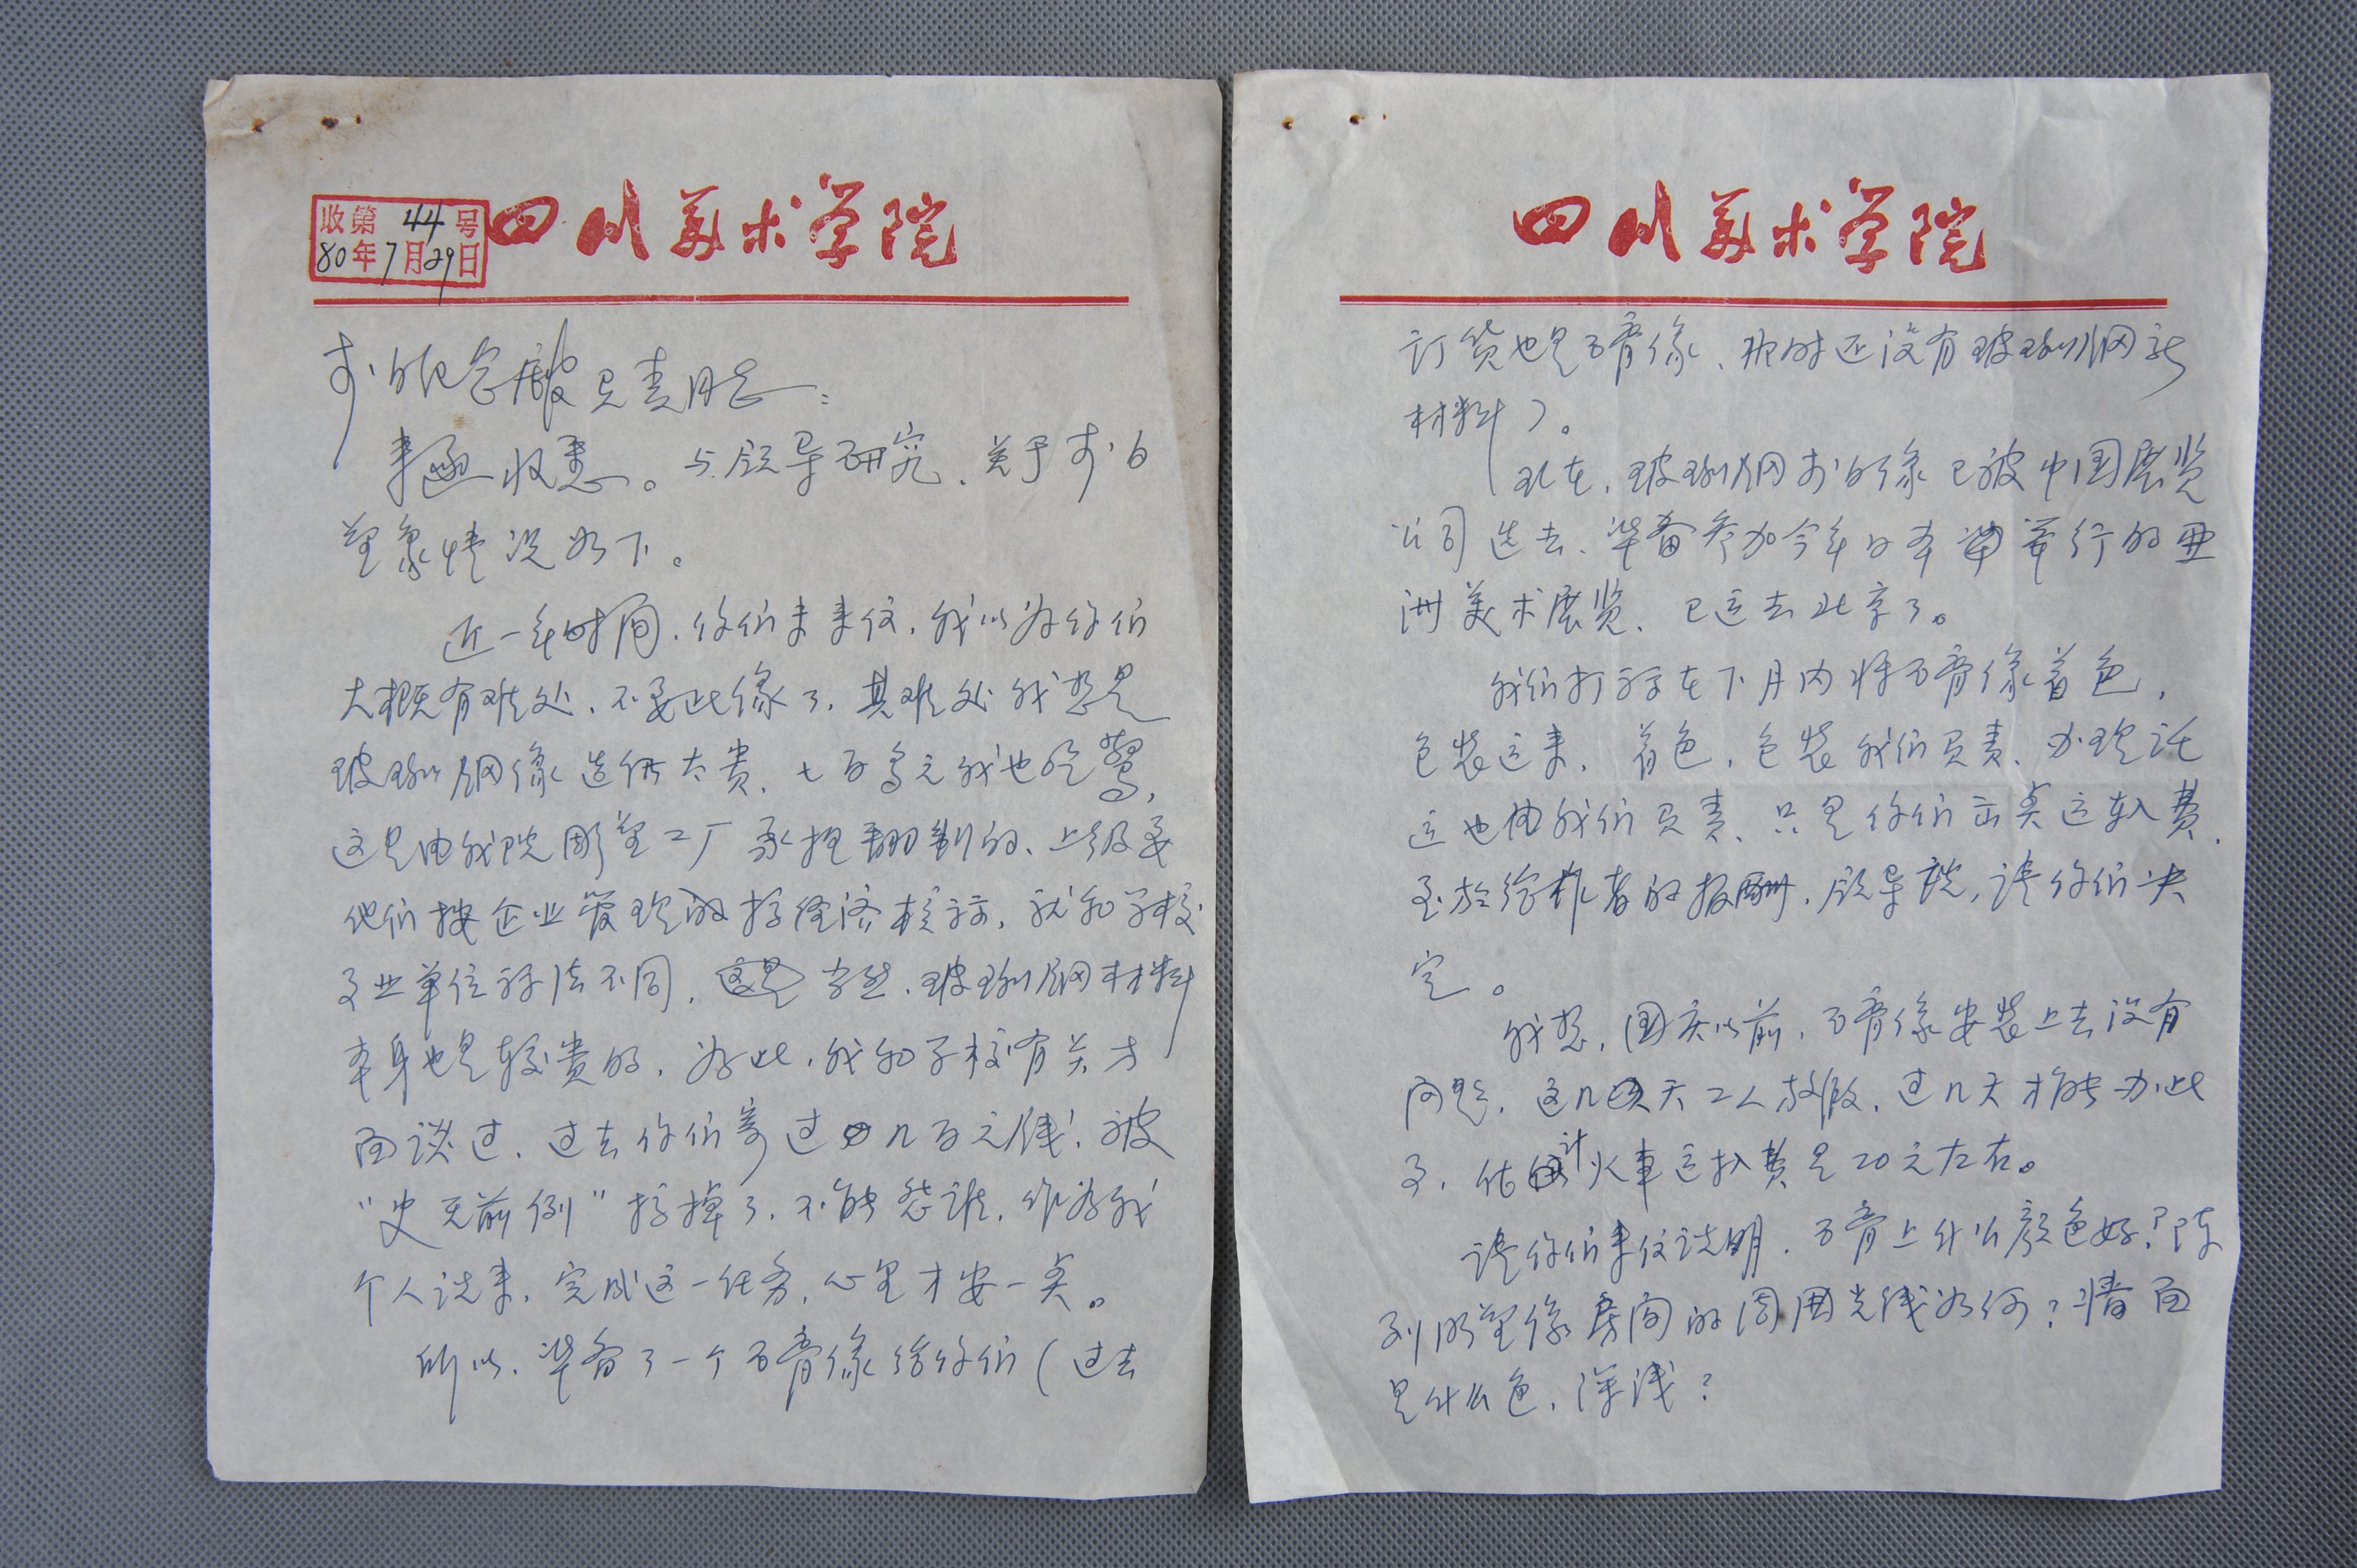 四川美术学院
收第44号
80年7月29日
李白纪念馆负责同志：
来函收悉。与领导研究、关于李白
塑象情况如下。
近一年时间，你们未来信，我以为你们
大概有难处，不要此像了，其难处我想是
玻璃钢像造价太贵，七百多元我也吃驚，
这是由我院雕塑工厂承担翻制的、上级要
他们按企业管理的搞经济核算，就和学校
事业单位算法不同，当然、玻璃钢材料
本身也是较贵的，为此，我和学校有关方
面谈过，过去你们寄过几百元钱，被
“史无前例”搞掉了，不能怨谁，作为我
个人说来，完成这一任务，心里才安一点。
所以，准备了一个石膏像给你们（过去
四川美术学院
订货也是石膏像、那时还没有玻璃钢新
材料）。
现在，玻璃钢李白像已被中国展览
公司选去、准备参加今年日本举行的亚
洲美术展览、已运去北京了。
我们打算在下月内将石膏像着色，
包装运来，着色，包装我们负责、办理託
运也由我们负责、只是你们出点运输费，
至於给作者的报酬，领导说，请你们决
定。
我想，国庆以前，石膏像安装上去没有
问题，这几天工人放假，过几天才能办此
事，估计火車运输费是20元左右。
请你们来信说明，石膏上什么颜色好？陈
列塑像房间的周围光线如何？墙面
是什么色，深浅？